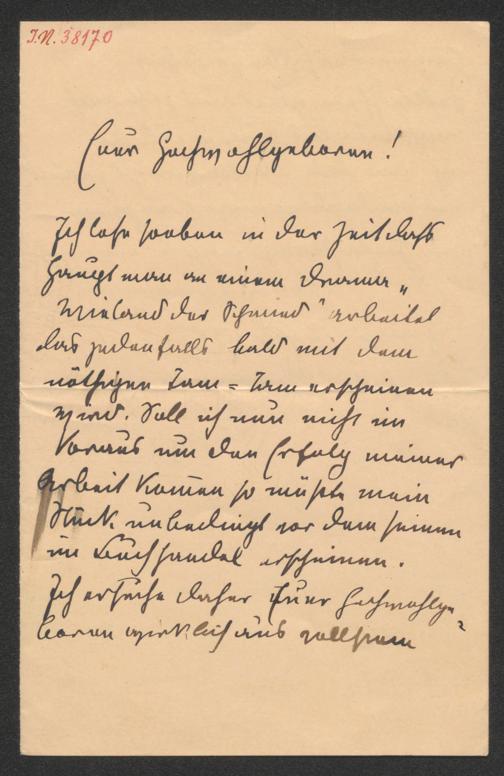 I.N. 38170
Euer Hochwohlgeboren!
Ich lese soeben in der Zeit dass
Hauptmann an einem Drama „
Wieland der Schmied" arbeitet
das jedenfalls bald mit dem
nöthigen Tam=Tam erscheinen
wird. Soll ich nun nicht im
Voraus um den Erfolg meiner
Arbeit kommen so müßte mein
Stück unbedingt vor dem seinen
im Buchhandel erscheinen.
Ich ersuche daher Euer Hochwohlge=
boren wirklich aus vollstem